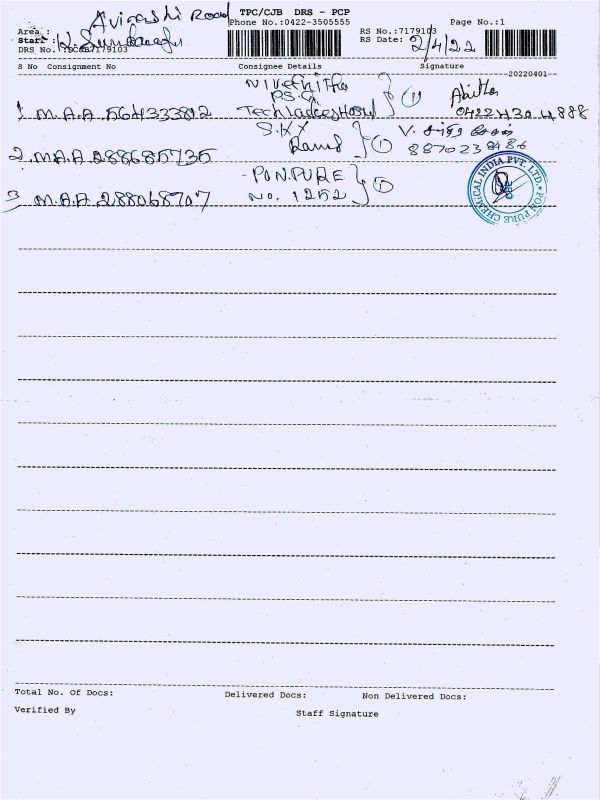 Avinashi Road
TPC/CJB DRS - PCP
Phone No.:0422-3505555
Page No.:1
Area :
RS No.:7179103
Start :
RS Date: 2/4/22
DRS No.:
7179103
S No Consignment No Consignee Details Signature
--20220401--
Nivethitha
P.S.G
1 M.A.A 564333812 Tech Ladies Hostel 1
0422 430 4888
S.K.X
V.
2 M.A.A 288685735 1
PON.PURE
3 M.A.A 288068707 No. 1252 1
PON PURE CHEMICAL INDIA PVT. LTD.
Total No. Of Docs: Delivered Docs: Non Delivered Docs:
Verified By Staff Signature